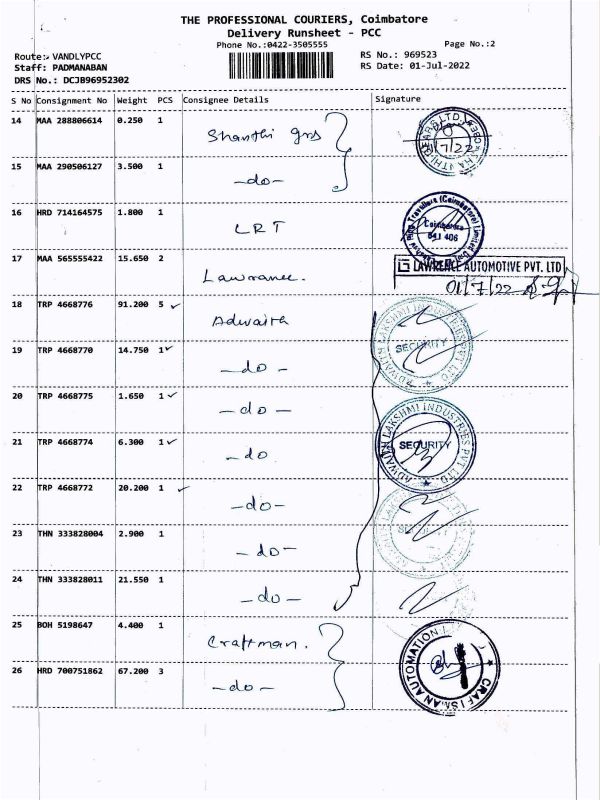 THE PROFESSIONAL COURIERS, Coimbatore
Delivery Runsheet - PCC
Phone No.:0422-3505555
Page No.:2
Route:- VANDLYPCC
RS No.: 969523
Staff: PADMANABAN
RS Date: 01-Jul-2022
DRS No.: DCJB96952302
S No Consignment No Weight PCS Consignee Details Signature
14 MAA 288806614 0.250 1
Shanthi grs
01/7/22
15 MAA 290506127 3.500 1
-do-
16 HRD 714164575 1.800 1
LRT
Coimbatore
641 406
17 MAA 565555422 15.650 2
Lawrance.
LAWRENCE AUTOMOTIVE PVT. LTD
01/7/22
18 TRP 4668776 91.200 5 ✓
Adwaith
ADWAITH LAKSHMI INDUSTRIES PVT LTD
SECURITY
19 TRP 4668770 14.750 1 ✓
-do-
20 TRP 4668775 1.650 1 ✓
-do-
ADWAITH LAKSHMI INDUSTRIES PVT LTD
SECURITY
21 TRP 4668774 6.300 1 ✓
-do
22 TRP 4668772 20.200 1 ✓
-do-
23 THN 333828004 2.900 1
-do-
24 THN 333828011 21.550 1
-do-
25 BOH 5198647 4.400 1
Craftman.
CRAFTSMAN AUTOMATION
26 HRD 700751862 67.200 3
-do-